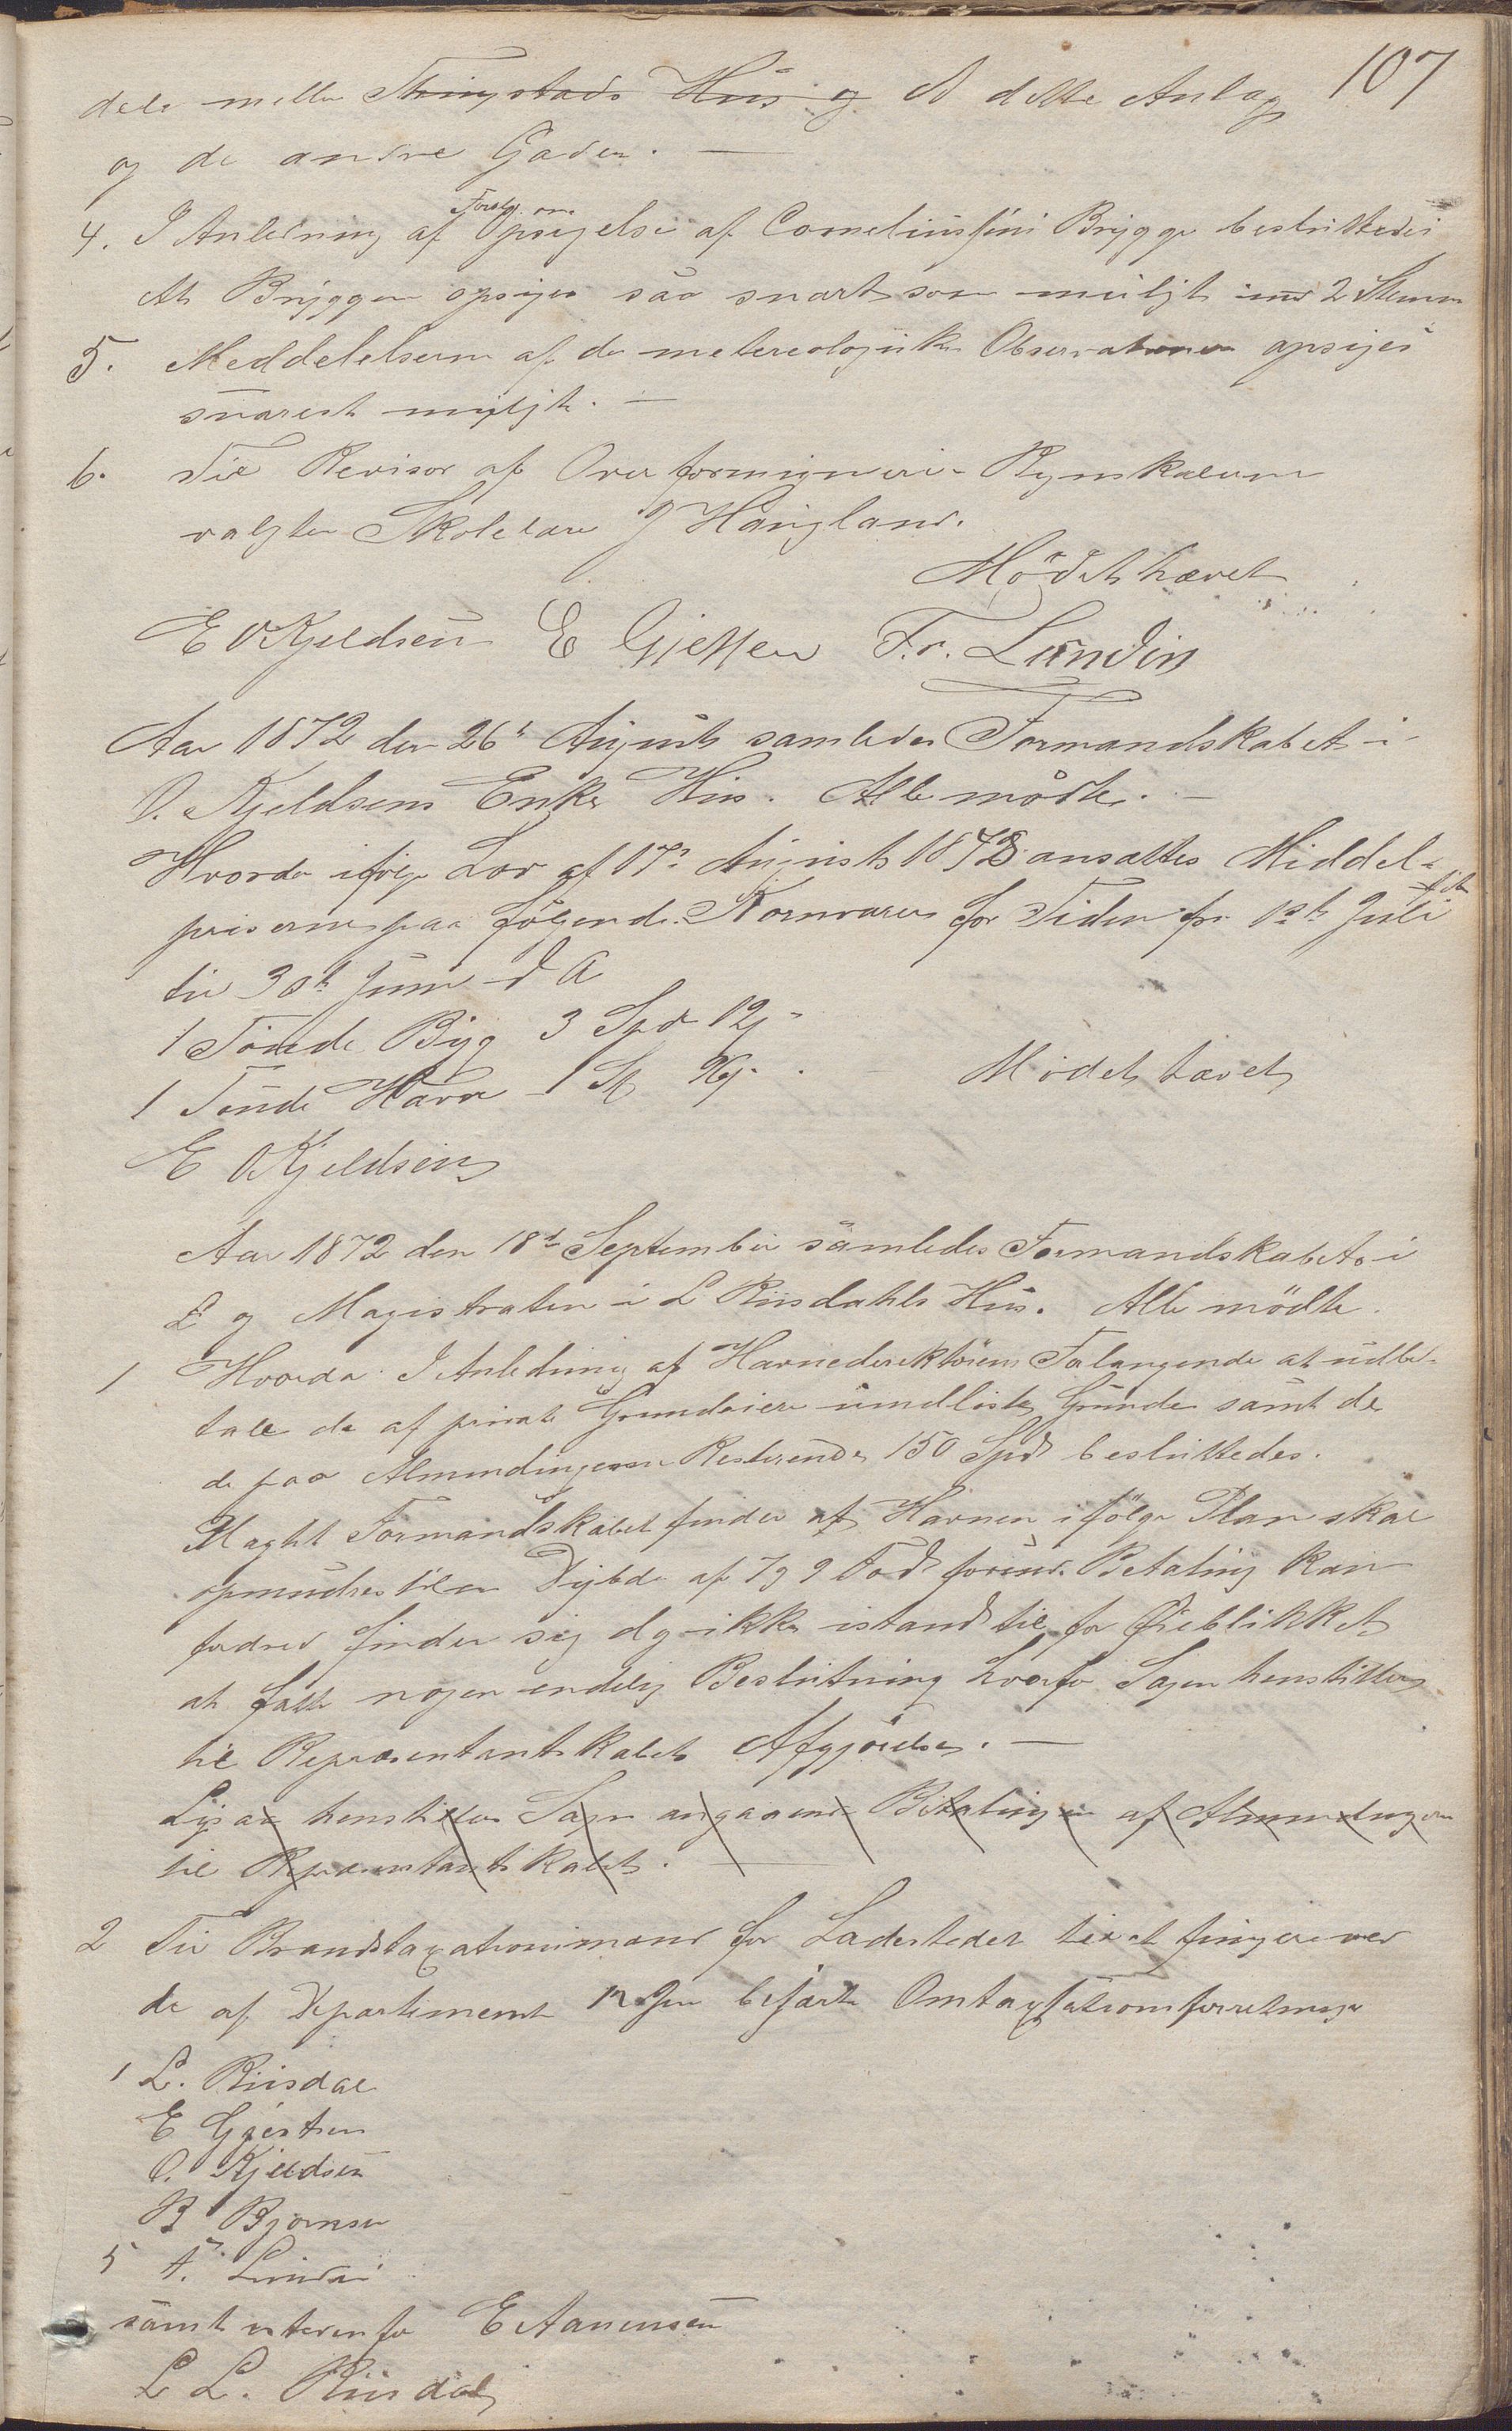 107
dele mellem Thingstads Hus og A dette Anlæg
og de andre Gader. —
Forslg. om
4. I Anledning af Opsigelse af Corneliussens Brygge besluttedes
At Bryggen opsiges saa snart som muligt imod 2 Stemmer
5. Meddelelserne af de metereologiske Observationer opsiges
snarest muligt. —
6. Til Revisor af Overformynderi-Regnskaberne
valgtes Skolelærer J Haugland.
Mödet hævet
E O Kjeldsen E Gjertsen Fr. Lundin
Aar 1872 den 26de August samledes Formandskabet i
O. Kjeldsens Enkes Hus. Alle mödte. —
Hvorda ifölge Lov af 17de August 1872 ansattes Middel-
priserne paa følgende Kornvarer for Tiden fra 1ste Juli
til 30te Juni d A
1 Tönde Byg 3 Spd 12
1 Tönde Havre 1 Sp Mödet hævet
E O Kjeldsen
Aar 1872 den 18de September samledes Formandskabet i
L og Magistraten i L Riisdahls Hus. Alle mödte.
1 Hvorda I Anledning af Havnedirektörens Forlangende at udbe-
tale de af private Grundeiere Grunde samt de
de paa Almendingerne Resterende 150 Spd besluttedes.
Magtet Formandskabet finder at Havnen ifölge Plan skal
opmudres til en Dybde af 7 à 9 Fod forinden Betaling kan
fordres finder sig dog ikke istand til for Öieblikket
at fatte nogen endelig Beslutning hvorfor Sagen henstilles
til Repræsentantskabets Afgjörelse. —
Ligesaa henstilles Sagen angaaende Betalingen af Almendingerne
til Repræsentantskabet. —
2 Til Brandtaxationsmænd for Ladestedet til at fungere ved
de af Departement befalte Omtaxationsforretninger
1 L. Riisdal
E Gjertsen
O. Kjeldsen
B Bjornsen
5 F. Lundin
samt E Aanensen
L L. Riisdal